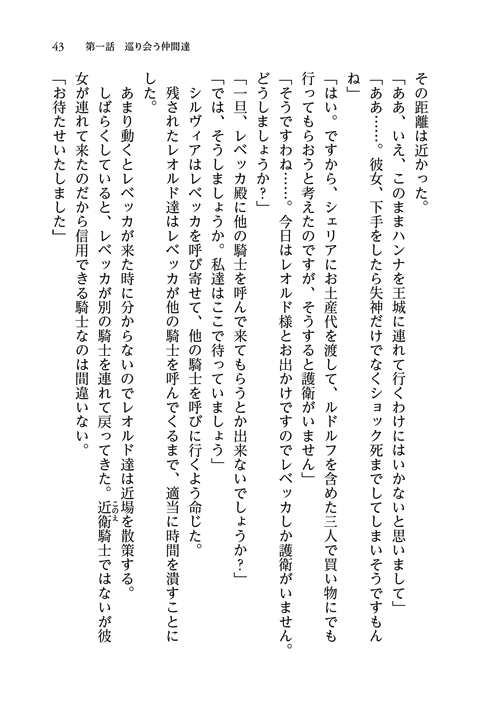 43　第一話　巡り会う仲間達
その距離は近かった。
「ああ、いえ、このままハンナを王城に連れて行くわけにはいかないと思いまして」
「ああ……。彼女、下手をしたら失神だけでなくショック死までしてしまいそうですもん
ね」
「はい。ですから、シェリアにお土産代を渡して、ルドルフを含めた三人で買い物にでも
行ってもらおうと考えたのですが、そうすると護衛がいません」
「そうですわね……。今日はレオルド様とお出かけですのでレベッカしか護衛がいません。
どうしましょうか？」
「一旦、レベッカ殿に他の騎士を呼んで来てもらうとか出来ないでしょうか？」
「では、そうしましょうか。私達はここで待っていましょう」
シルヴィアはレベッカを呼び寄せて、他の騎士を呼びに行くよう命じた。
残されたレオルド達はレベッカが他の騎士を呼んでくるまで、適当に時間を潰すことに
した。
あまり動くとレベッカが来た時に分からないのでレオルド達は近場を散策する。
しばらくしていると、レベッカが別の騎士を連れて戻ってきた。近衛騎士ではないが彼
このえ
女が連れて来たのだから信用できる騎士なのは間違いない。
「お待たせいたしました」